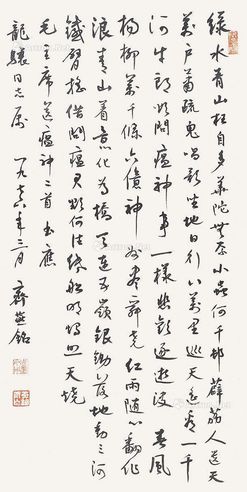 绿水青山枉自多华陀无奈小虫何千村薜荔人遗矢
万户萧疏鬼唱歌坐地日行八万里巡天遥看一千
河牛郎欲问瘟神事一样悲欢逐逝波 春风
杨柳万千条六亿神州尽舜尧红雨随心翻作
浪青山着意化为桥天连五岭银锄落地动三河
铁臂摇借问瘟君欲何往纸船明烛照天烧
毛主席送瘟神二首 书应
龙骧同志属 一九七六年三月 齐燕铭